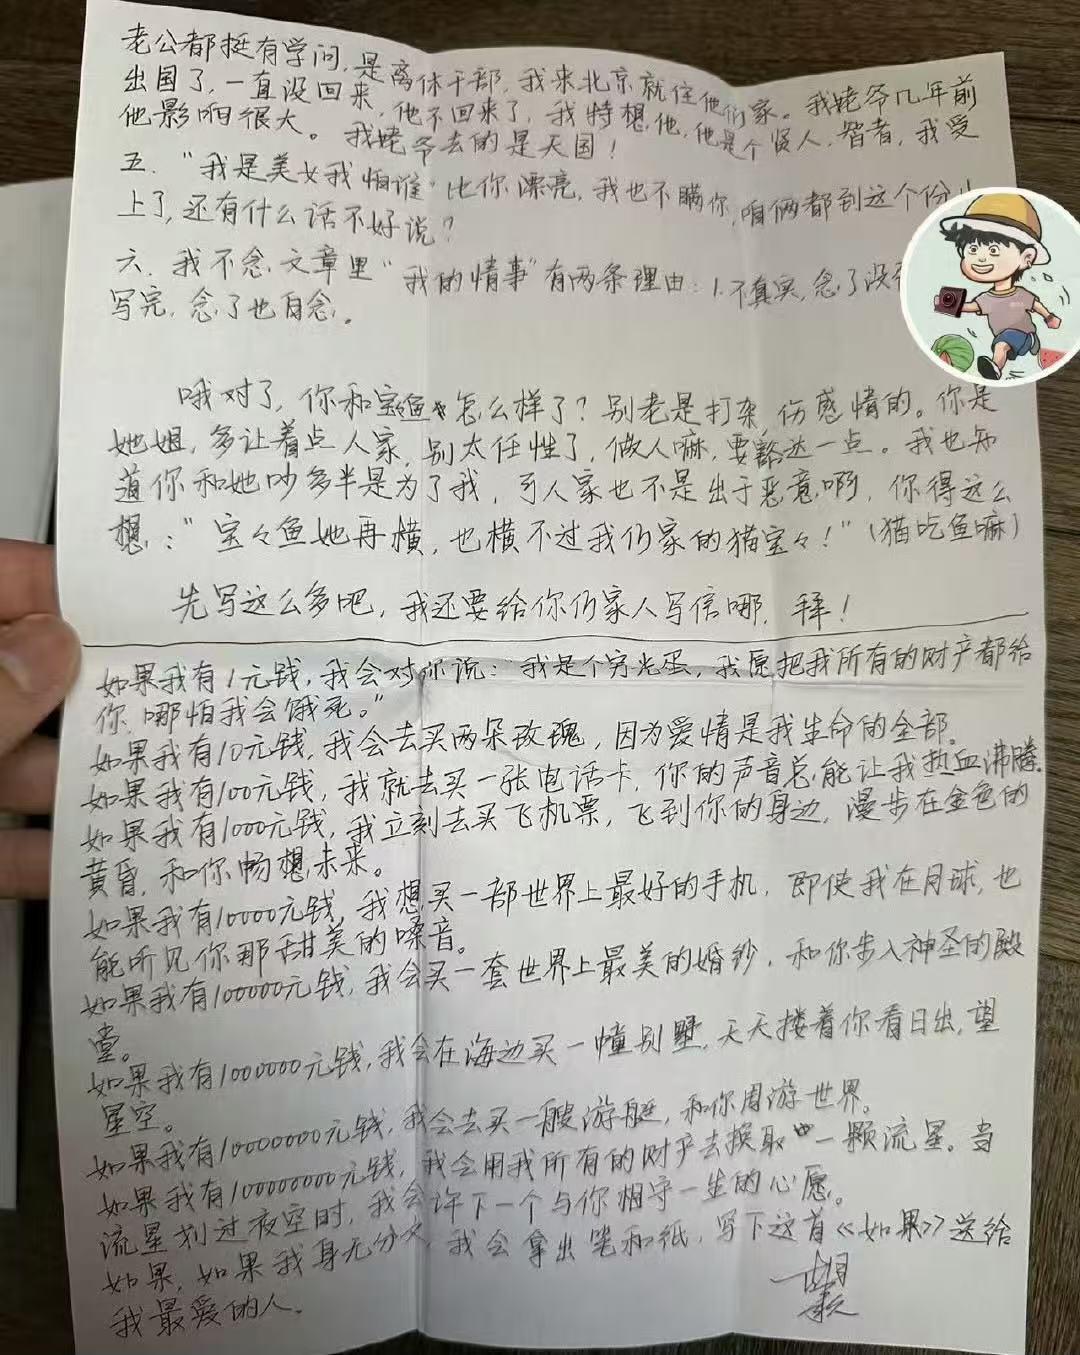 老公都挺有学问,是离休干部,我来北京就住他们家。我姥爷几年前
出国了,一直没回来,他不回来了,我特想他,他是个贤人,智者,我受
他影响很大。我姥爷去的是天国!
五."我是美女我怕谁"比你漂亮,我也不瞒你,咱俩都到这个份
上了,还有什么话不好说?
六.我不念文章里"我的情事"有两条理由:1.不真实,念了没
写完,念了也白念。
哦对了,你和宝鱼怎么样了?别老是打杂,伤感情的。你是
她姐,多让着点人家,别太任性了,做人嘛,要豁达一点。我也知
道你和她吵多半是为了我,可人家也不是出于恶意啊,你得这么
想:"宝々鱼她再横,也横不过我们家的猫宝々!"(猫吃鱼嘛)
先写这么多吧,我还要给你们家人写信哪,拜!
如果我有1元钱,我会对你说:"我是个穷光蛋,我愿把我所有的财产都给
你,哪怕我会饿死。"
如果我有10元钱,我会去买两朵玫瑰,因为爱情是我生命的全部。
如果我有100元钱,我就去买一张电话卡,你的声音总能让我热血沸腾。
如果我有1000元钱,我立刻去买飞机票,飞到你的身边,漫步在金色的
黄昏,和你畅想未来。
如果我有10000元钱,我想买一部世界上最好的手机,即使我在月球,也
能听见你那甜美的嗓音。
如果我有100000元钱,我会买一套世界上最美的婚钞,和你步入神圣的殿
堂。
如果我有1000000元钱,我会在海边买一幢别墅,天天搂着你看日出,望
星空。
如果我有10000000元钱,我会去买一艘游艇,和你周游世界。
如果我有100000000元钱,我会用我所有的财产去换取一颗流星。当
流星划过夜空时,我会许下一个与你相守一生的心愿。
如果,如果我身无分文,我会拿出笔和纸,写下这首《如果》送给
我最爱的人。